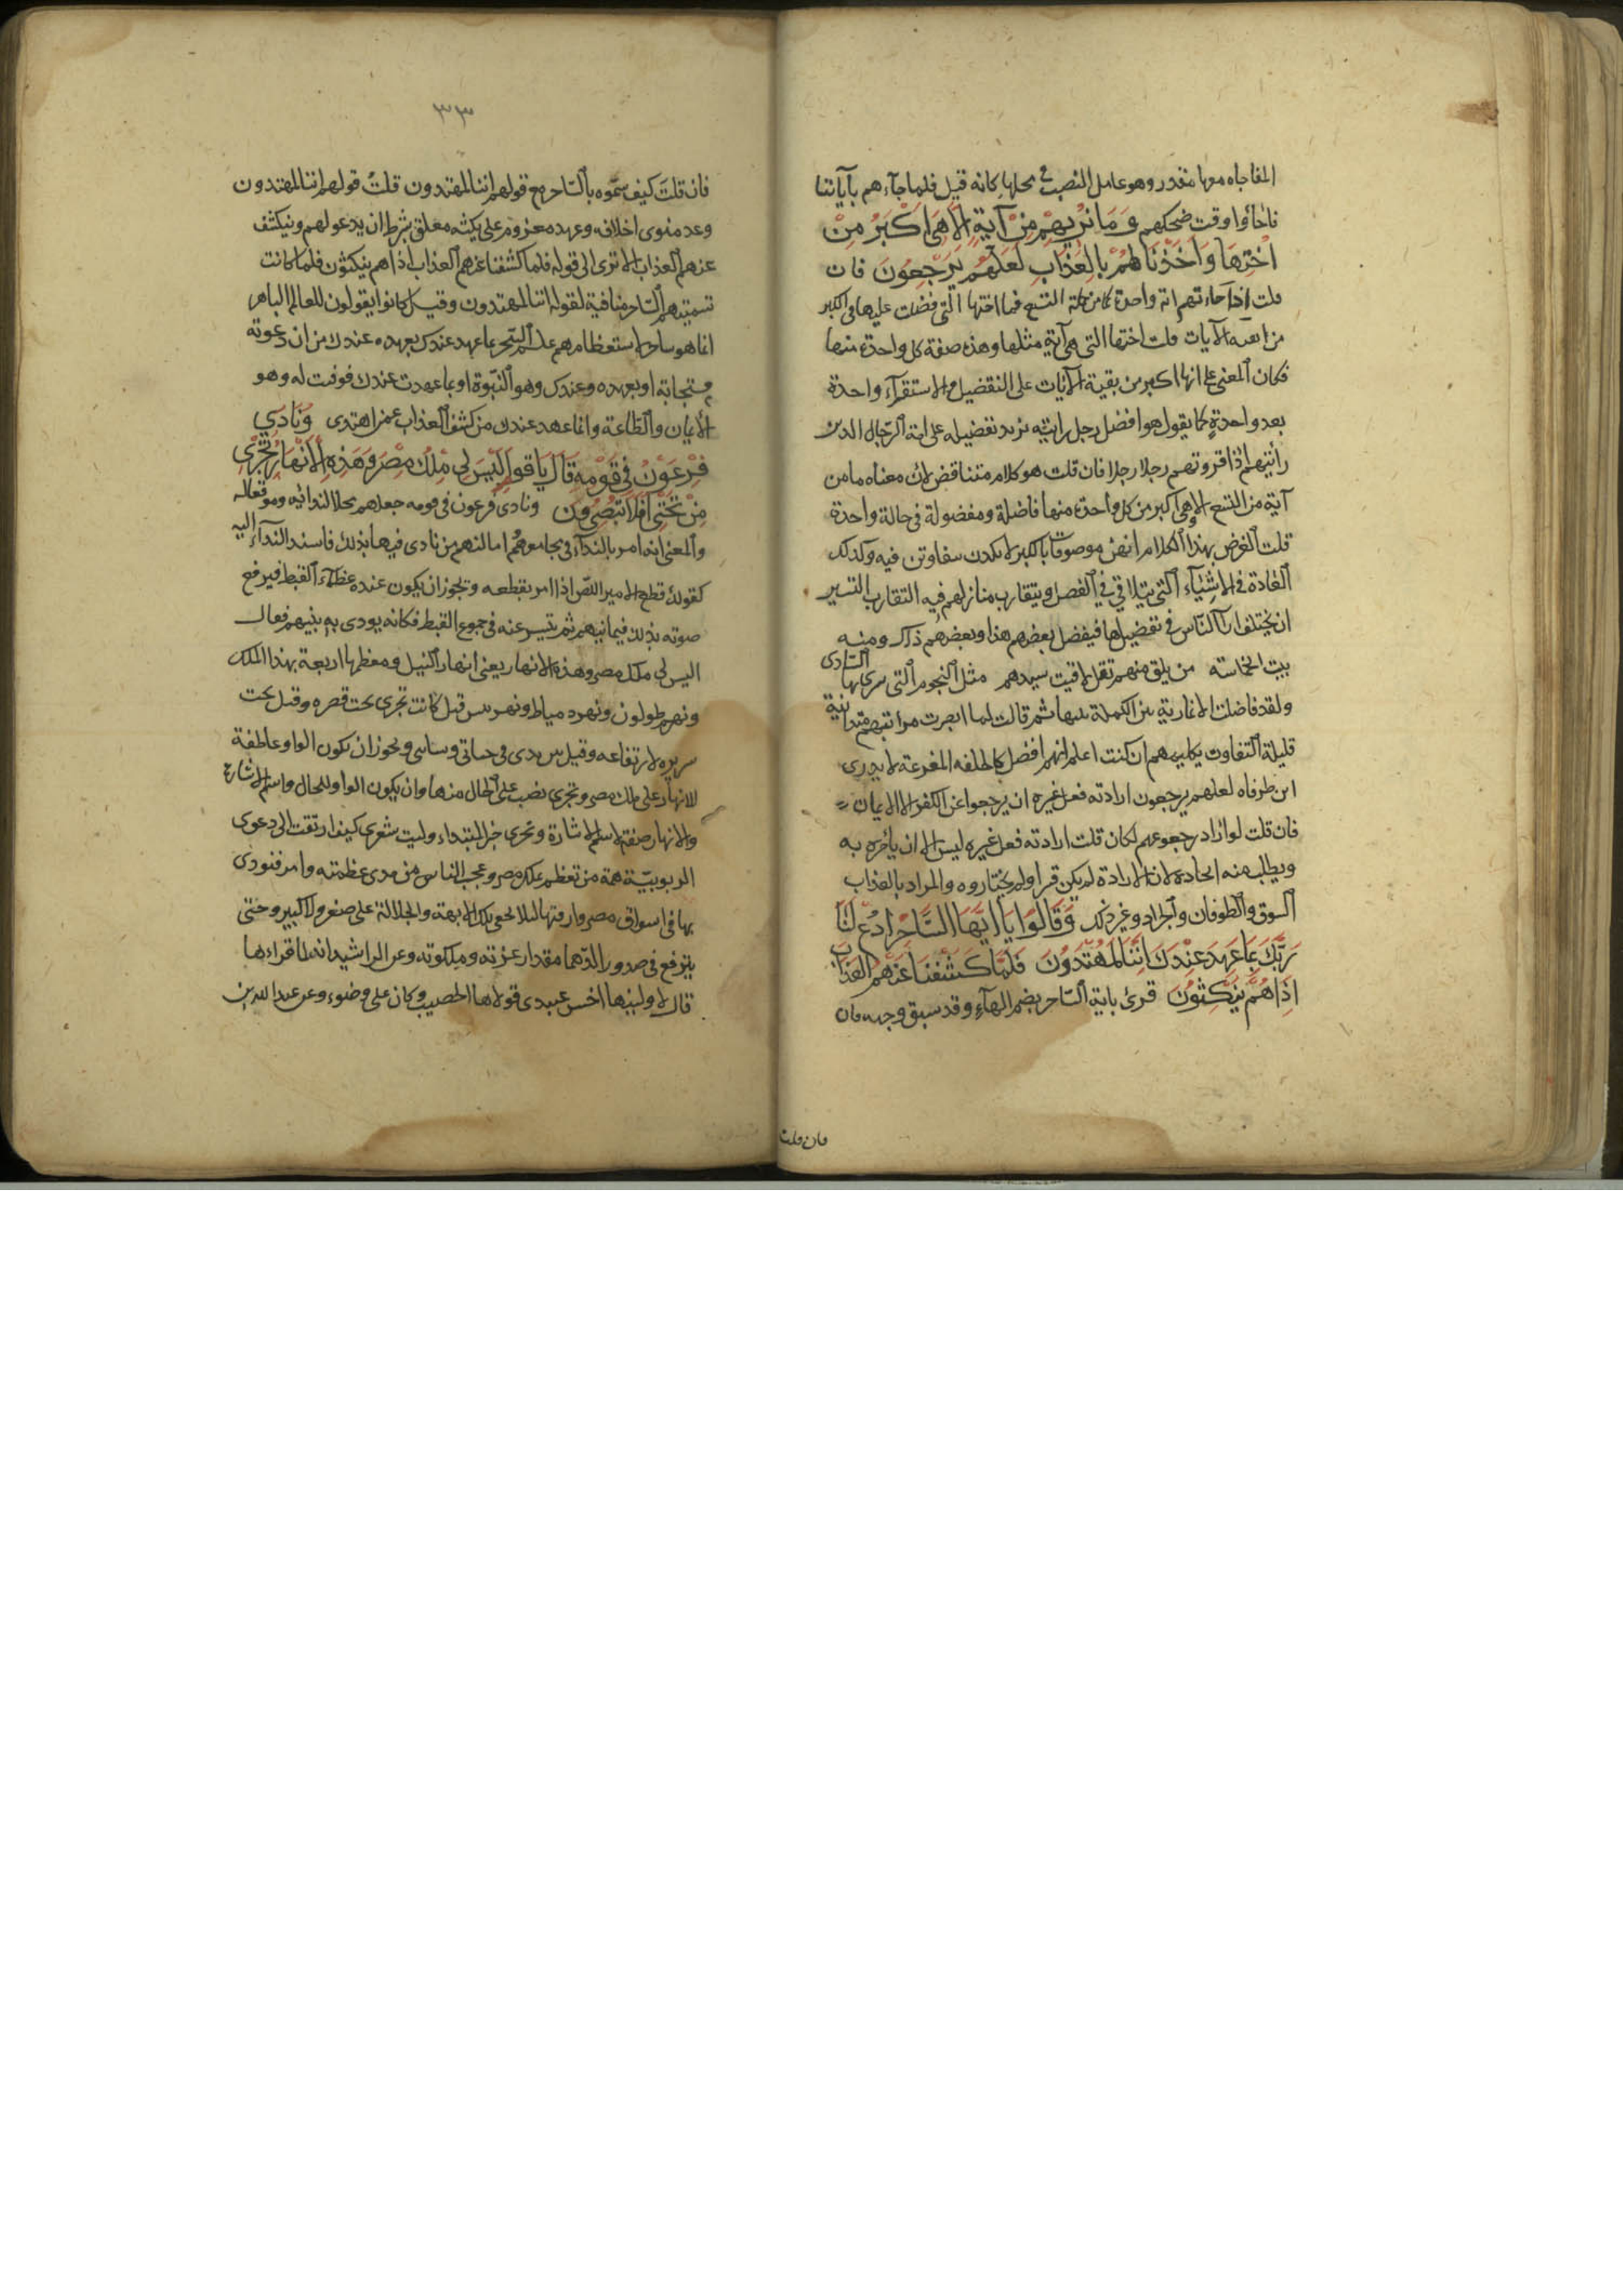 المفاجاه معها مقدر وهو عامل النصب في محلها كانه قيل فلما جاءهم بآياتنا
فاجأوا وقت ضحكهم وَمَا نُرِيهِمْ مِنْ آيَةٍ اِلَّا هِىَ اَكْبَرُ مِنْ
اُخْتِهَا وَاَخَذْنَاهُمْ بِالْعَذَابِ لَعَلَّهُمْ يَرْجِعُونَ فان
قلت اذا جاءتهم اية واحدة من جملة التسع فما اختها التي فضلت عليها في الكبر
من بقية الآيات قلت اختها التي هي آية مثلها وهذه صفة كل واحدة منها
فكان المعنى على انها اكبر من بقية الآيات على التفضيل والاستقرآء واحدة
بعد واحدةٍ كما يقول هو افضل رجل رايته تريد تفضيله على امة الرّجال الذين
رأيتهم اذا قروتهم رجلا رجلا فان قلت هو كلام متناقض لان معناه ما من
آية من التسع الا وهي اكبر من كل واحدة منها فاضلة ومفضولة في حالة واحدة
قلت الغرض بهذا الكلام انهن موصوفات بالكبر لا يكدن يتفاوتن فيه وكذلك
العادة في الاشيآء التي تتلاقي في الفضل ويتقارب منازلهم فيه التقارب اليسير
ان يختلف ارآ النّاس في تفضيلها فيفضل بعضهم هذا وبعضهم ذاك ومنه
بيت الحماسه من يلق منهم تقل لاقيت سيدهم مثل النجوم التي سرى بها السّارى
ولقد فاضلت الانمارية بين الكملة بنيها ثم قالت لما ابصرت مراتبهم متدانية
قليلة التفاوت ثكلتهم ان كنت اعلم ايهم افضل كالحلقه المفرغة لا يدرى
اين طرفاه لعلهم يرجعون ارادته فعل غيره ان يرجعوا عن الكفر الى الايمان
فان قلت لو اراد رجوعهم لكان قلت ارادته فعل غيره ليس الا ان يأمره به
ويطلب منه ايجاده لان الارادة لم يكن قسرا ولم يختاروه والمراد بالعذاب
السوق والطوفان والجراد وغير ذلك وَقَالُوا يَا اَيُّهَا السَّاحِرُ ادْعُ لَنَا
رَبَّكَ بِمَا عَهِدَ عِنْدَكَ اِنَّنَا لَمُهْتَدُونَ فَلَمَّا كَشَفْنَا عَنْهُمُ الْعَذَابَ
اِذَا هُمْ يَنْكُثُونَ قرئ يا ايه السّاحر بضم الهآءِ وقد سبق وجهه فان
فان قلت
٣٣
فان قلتَ كيف سمّوه بالسّاحر مع قولهم اننا لمهتدون قلتُ قولهم اننا لمهتدون
وعد منوى اخلافه وعهد معزوم على نكثه معلق بشرط ان يدعو لهم وينكشف
عنهم العذاب الا ترى الى قوله فلما كشفنا عنهم العذاب اذا هم ينكثون فما كانت
تسميتهم السّاحر منافية لقوله اننا لمهتدون وقيل كانوا يقولون للعالم الماهر
انما هو ساحر لاستعظامهم علم السّحر بما عهد عندك بعهده عندك من ان دعوته
مستجابة او بعهده عندك وهو النّبوة او بما عهدت عندك فوفيت له وهو
الايمان والطّاعة وانما عهد عندك من كشف العذاب عمن اهتدى وَنَادَى
فِرْعَوْنُ فِى قَوْمِهِ قَالَ يَا قَوْمِ اَلَيْسَ لِى مُلْكُ مِصْرَ وَهَذِهِ الْاَنْهَارُ تَجْرِى
مِنْ تَحْتِى اَفَلَا تُبْصِرُونَ ونادى فرعون في قومه جعلهم محلا لندائه وموقعا له
والمعنى انه امر بالندآء في مجامعهم واماكنهم من نادى فيها بذلك فاسند الندآء اليه
كقولك قطع الامير اللصّ اذا امر بقطعه ويجوز ان يكون عنده عظمآء القبط فيرفع
صوته بذلك فيما بينهم ثم ينتشر عنه في جموع القبط فكانه نودى به بينهم فقال
اليس لي ملك مصر وهذه الانهار يعني انهار النيل ومعظمها اربعة نهر الملك
ونهر طولون ونهر دمياط ونهر تنيس قيل كانت تجرى تحت قصره وقيل تحت
سريره لارتفاعه وقيل بين يدى في جناتي وبساتيني ويجوز ان يكون الواو عاطفة
للانهار على ملك مصر وتجرى نصب على الحال منها وان يكون الواو للحال واسم الاشارة
والانهار صفة لاسم الاشارة وتجرى خبر المبتداء وليت شعرى كيف ارتقت الى دعوى
الربوبيّة همة من تعظم بملك مصر وعجب الناس من مدى عظمته وامر فنودى
بها في اسواق مصر وازقتها لئلا يخفى تلك الابهة والجلالة على صغير ولا كبير وحتى
يتربع في صدور الدّهما مقدار عزته وملكوته وعن الرشيد انه لما قراءها
قال لاولينها اخسّ عبيدى فولاها الخصيب وكان على وضوءه وعن عبد الله بن